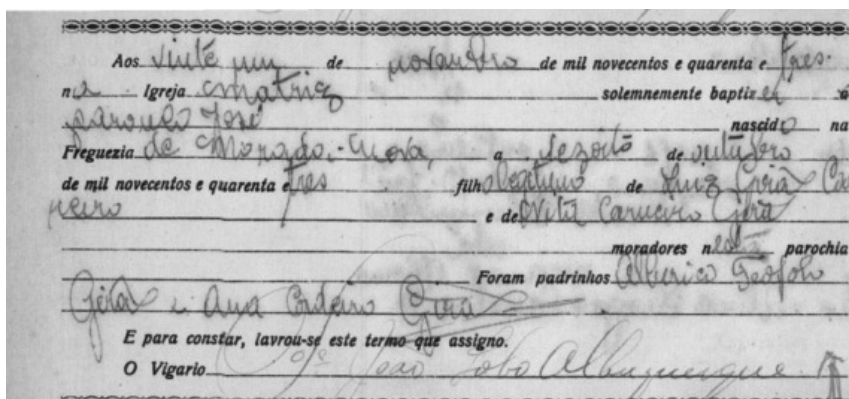 Aos vinte um de novembro de mil novecentos e quarenta e tres
na Igreja Matriz solemnemente baptizei á
parvulo José nascido na
Freguezia de Morada-Nova, a dezoito de outubro
de mil novecentos e quarenta e tres filho legitimo de Luiz Girão Car
neiro e de Carneiro Girão
moradores nesta parochia
Foram padrinhos Alberico Teofolo
Girão e Ana Cordeiro Girão
E para constar, lavrou-se este termo que assigno.
O Vigario Pe. João Lobo Albuquerque